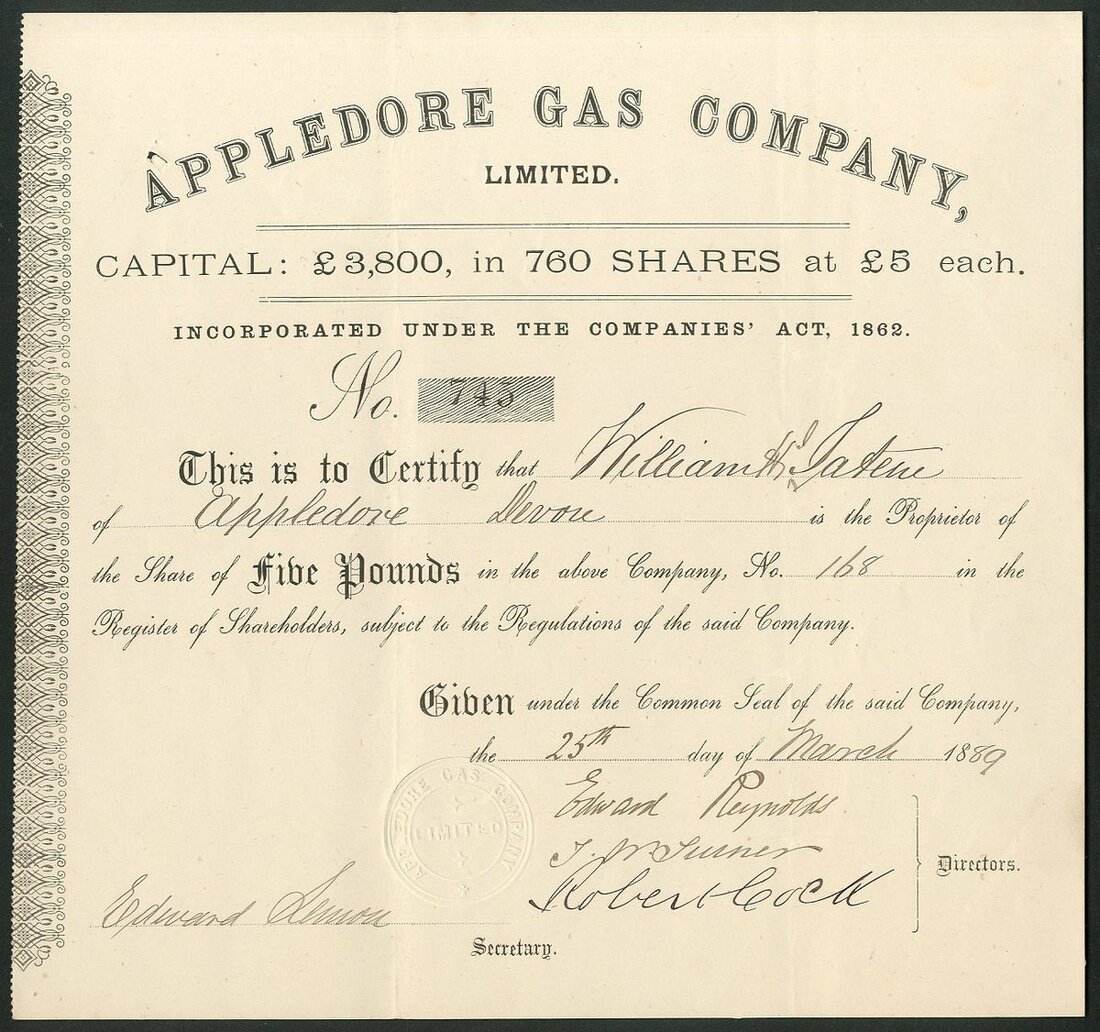 APPLEDORE GAS COMPANY,
LIMITED.
CAPITAL: £3,800, in 760 SHARES at £5 each.
INCORPORATED UNDER THE COMPANIES' ACT, 1862.
No. 745
This is to Certify that William Hd
of Appledore Devon is the Proprietor of
the Share of Five Pounds in the above Company, No. 168 in the
Register of Shareholders, subject to the Regulations of the said Company.
Given under the Common Seal of the said Company,
the 25th day of March 1889
APPLEDORE GAS COMPANY
LIMITED
Edward Reynolds
Turner
Robert Cock
Directors.
Edward Lemon
Secretary.